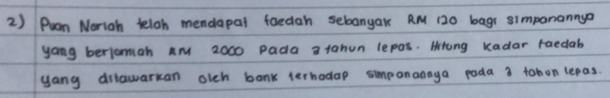 2) Puan Noriah telah mendapat faedah sebanyak RM 120 bagi simpanannya
yang berjumlah RM 2000 pada 3 tahun lepas. Hitung kadar faedah
yang ditawarkan oleh bank terhadap simpanannya pada 3 tahun lepas.